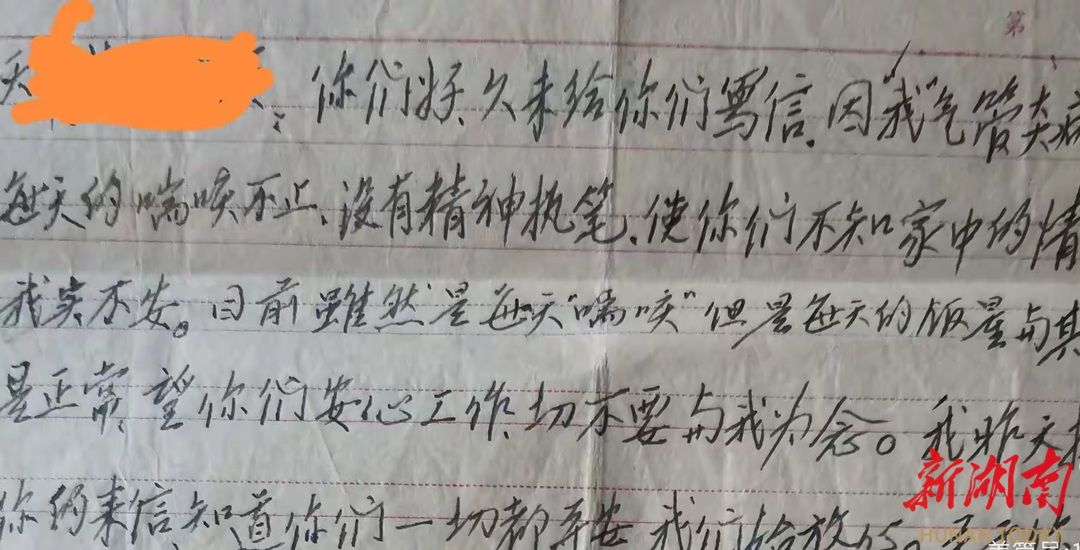 第
天
：你们好、久未给你们写信．因"我"气管炎病
每天的喘咳不止、没有精神执笔．使你们不知家中的情
我实不安。目前雖然是每天"喘咳"但是每天的饭量与其
是正常，望你们安心工作，切不要与我为念。我昨天
你的来信知道你们一切都平安 我们
新湖南
HUNAN TODAY